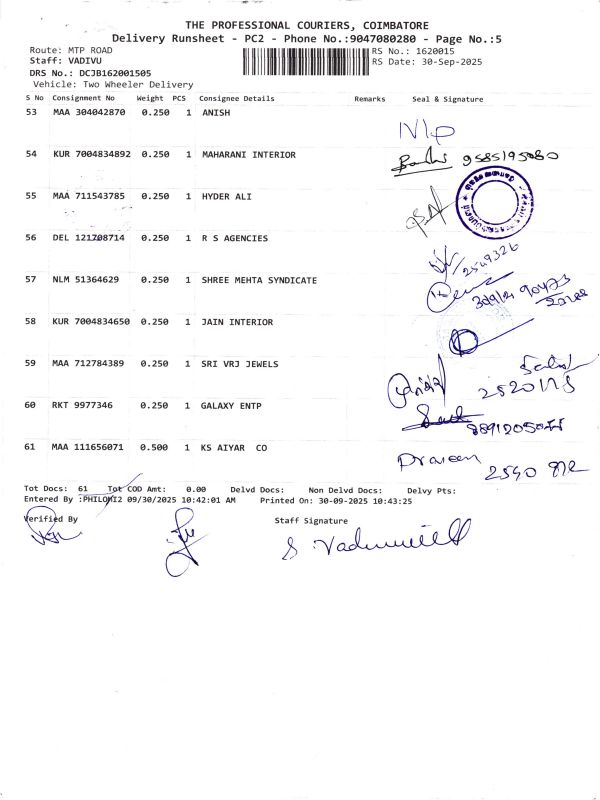 THE PROFESSIONAL COURIERS, COIMBATORE
Delivery Runsheet - PC2 - Phone No.:9047080280 - Page No.:5
Route: MTP ROAD RS No.: 1620015
Staff: VADIVU RS Date: 30-Sep-2025
DRS No.: DCJB162001505
Vehicle: Two Wheeler Delivery
S No Consignment No Weight PCS Consignee Details Remarks Seal & Signature
53 MAA 304042870 0.250 1 ANISH
N/p
54 KUR 7004834892 0.250 1 MAHARANI INTERIOR
55 MAA 711543785 0.250 1 HYDER ALI
56 DEL 121708714 0.250 1 R S AGENCIES
57 NLM 51364629 0.250 1 SHREE MEHTA SYNDICATE
58 KUR 7004834650 0.250 1 JAIN INTERIOR
59 MAA 712784389 0.250 1 SRI VRJ JEWELS
60 RKT 9977346 0.250 1 GALAXY ENTP
61 MAA 111656071 0.500 1 KS AIYAR CO
Praveen
Tot Docs: 61 Tot COD Amt: 0.00 Delvd Docs: Non Delvd Docs: Delvy Pts:
Entered By :PHILOMI2 09/30/2025 10:42:01 AM Printed On: 30-09-2025 10:43:25
Verified By Staff Signature